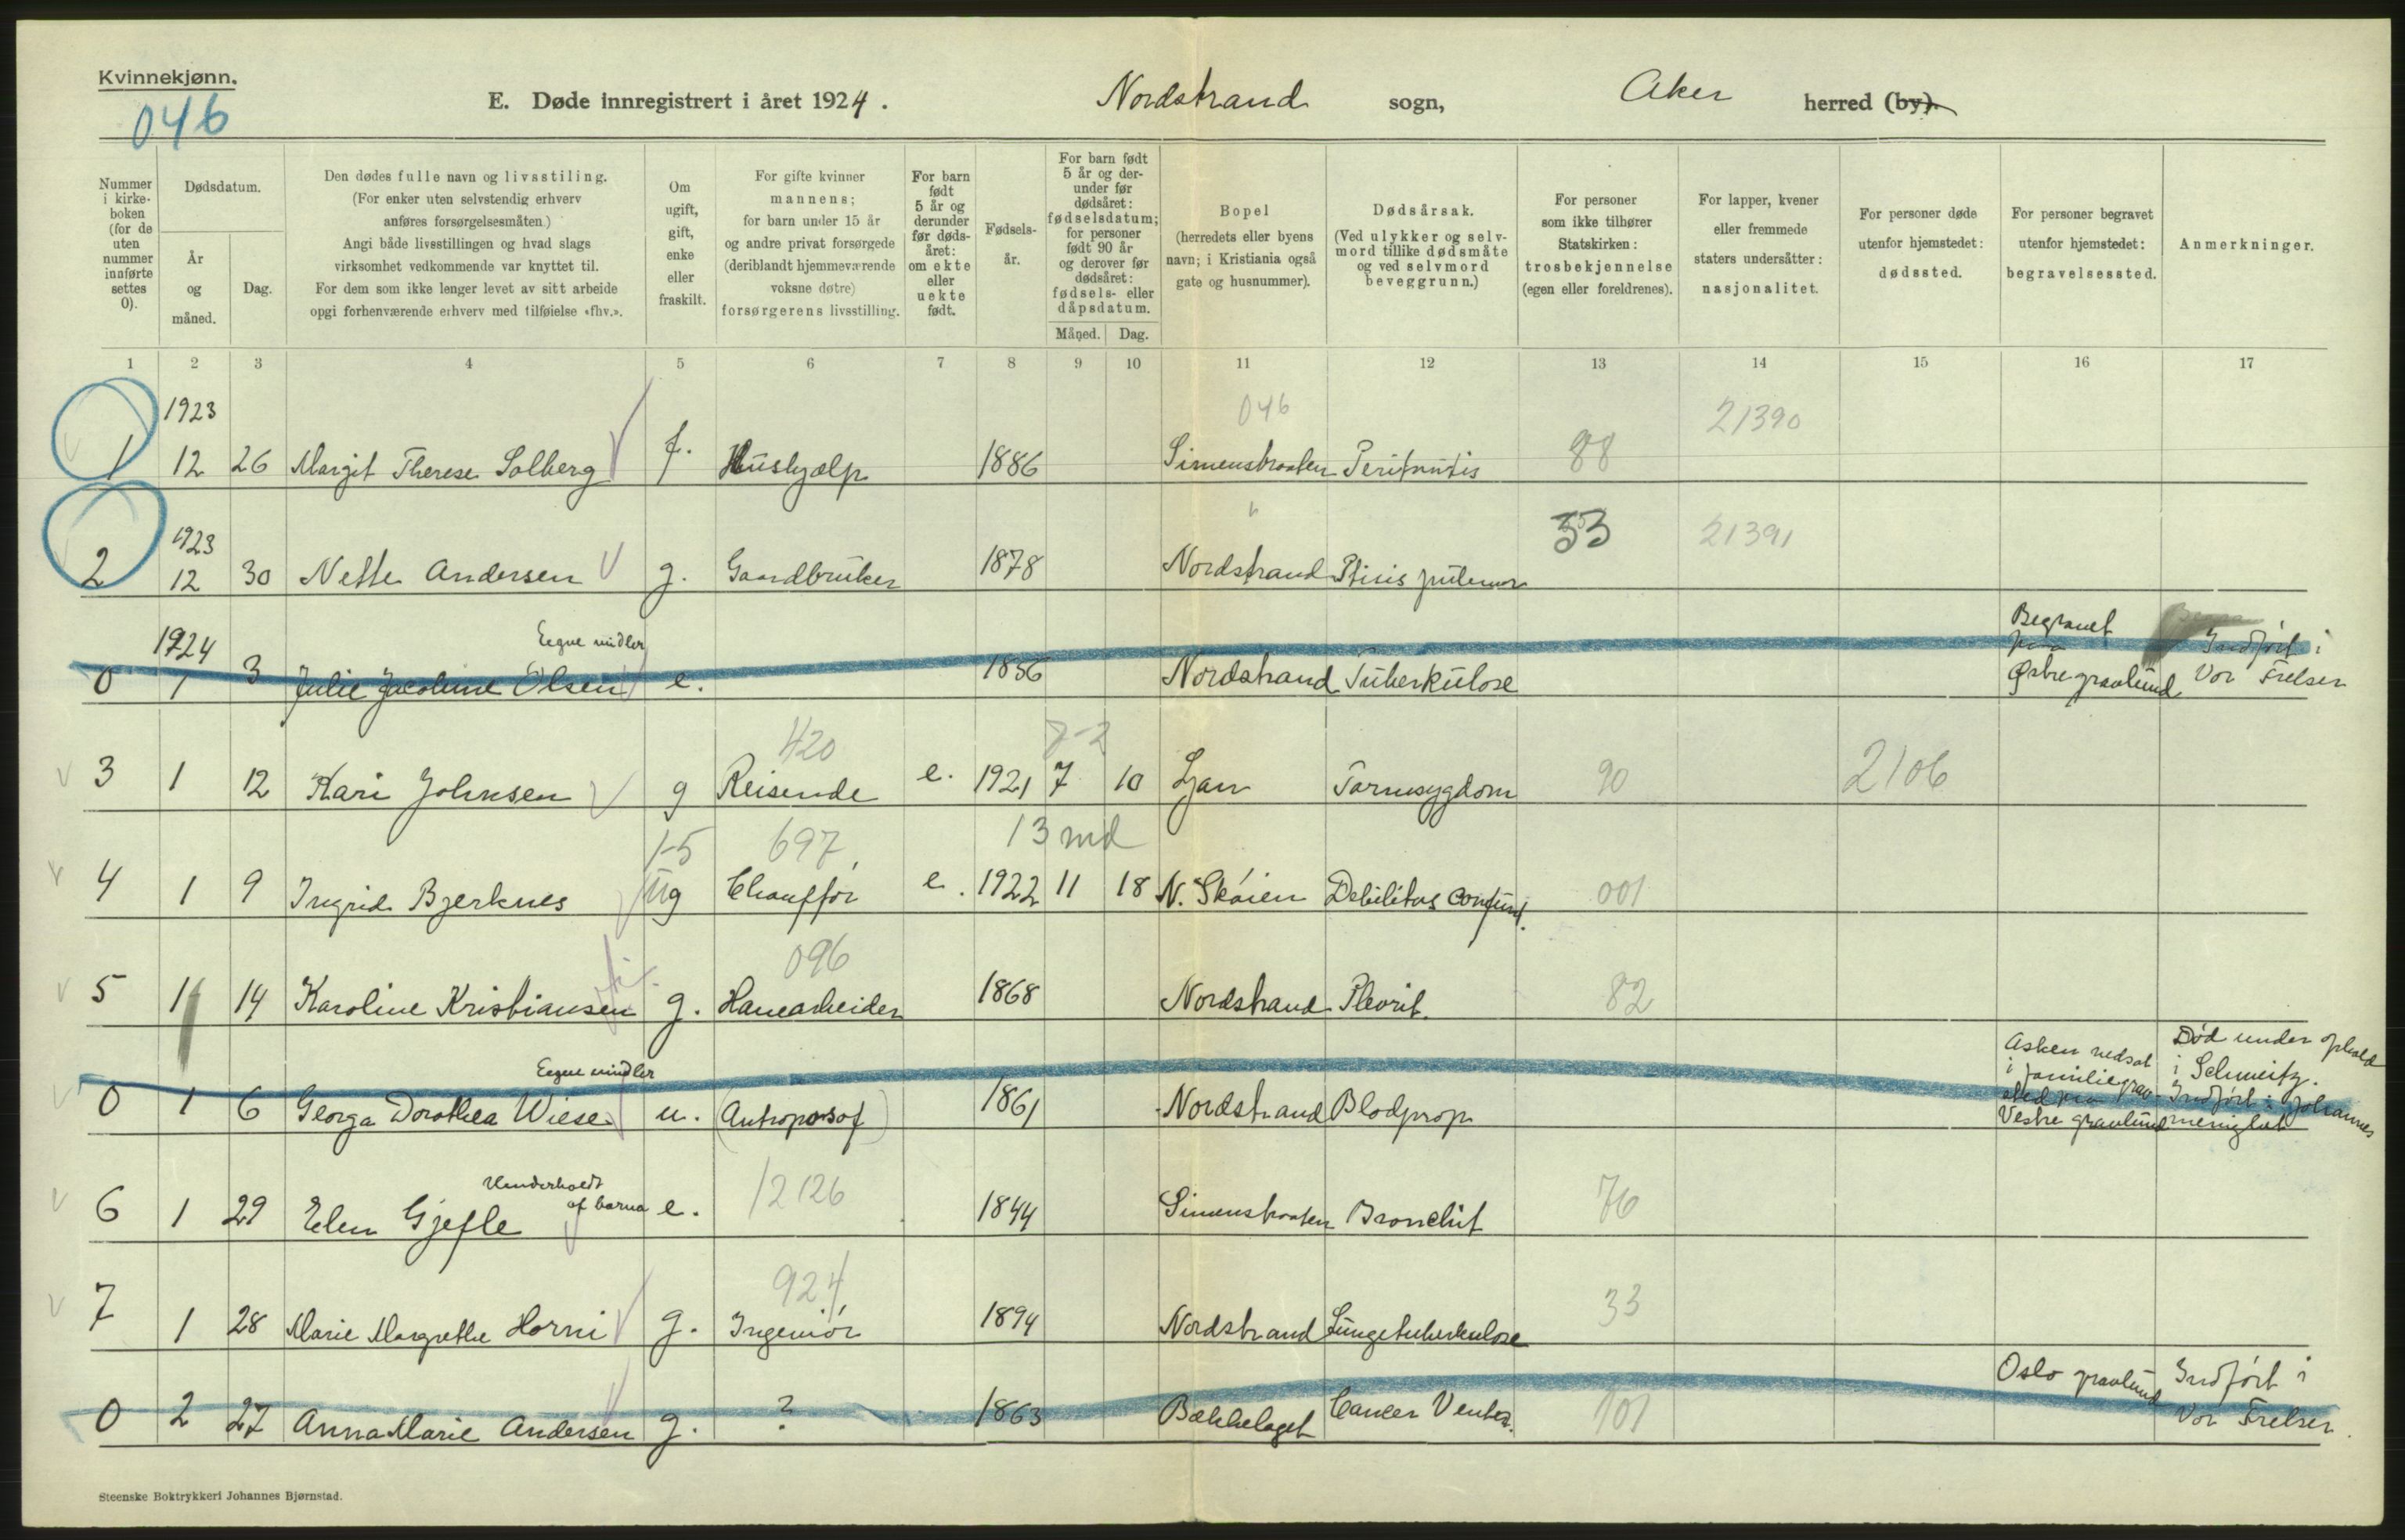 Kvinnekjønn.
046
E. Døde innregistrert i året 1924. Nordstrand sogn, Aker herred (by).
Nummer i kirke-boken (for de uten nummer innførte settes 0).
Dødsdatum.
År og måned.
Dag.
Den dødes fulle navn og livsstiling.
(For enker uten selvstendig erhverv
anføres forsørgelsesmåten.)
Angi både livsstillingen og hvad slags
virksomhet vedkommende var knyttet til.
For dem som ikke lenger levet av sitt arbeide
opgi forhenværende erhverv med tilføielse «fhv.».
Om ugift, gift, enke eller fraskilt.
For gifte kvinner
mannens;
for barn under 15 år
og andre privat forsørgede
(deriblandt hjemmeværende
voksne døtre)
forsørgerens livsstilling.
For barn født 5 år og derunder før døds-året: om ekte eller uekte født.
Fødsels-år.
For barn født 5 år og der-under før dødsåret: fødselsdatum; for personer født 90 år og derover før dødsåret: fødsels- eller dåpsdatum.
Måned. Dag.
Bopel
(herredets eller byens
navn; i Kristiania også
gate og husnummer).
Dødsårsak.
(Ved ulykker og selv-
mord tillike dødsmåte
og ved selvmord
beveggrunn.)
For personer
som ikke tilhører
Statskirken:
trosbekjennelse
(egen eller foreldrenes).
For lapper, kvener
eller fremmede
staters undersåtter:
nasjonalitet.
For personer døde
utenfor hjemstedet:
dødssted.
For personer begravet
utenfor hjemstedet:
begravelsessted.
Anmerkninger.
1 2 3 4 5 6 7 8 9 10 11 12 13 14 15 16 17
1923 046 21390
1 12 26 Margit Therese Solberg f. Hushjælp 1886 Simenstraaten Peritonitis 88
1923 " 33 21391
2 12 30 Nette Andersen g. Gaardbruker 1878 Nordstrand Ptisis pulmon
1924 Eegne midler Begravet paa Indført i
0 1 3 Julie Jacobine Olsen e. 1856 Nordstrand Tuberkulose Østre gravlund Vor Frelser
420 7-2
3 1 12 Kari Johnsen g Reisende e. 1921 7 10 Ljan Tarmsygdom 90 2106
1-5 697 13 md
4 1 9 Ingrid Bjerknes ug Chauffør e. 1922 11 18 N. Skøien Debilitas congenit. 001
096
5 1 14 Karoline Kristiansen g. Havearbeider 1868 Nordstrand Plevrit. 82
Eegne midler Asken nedsat i familiegrav- Død under ophold i Schweitz.
0 1 6 Georga Dorothea Wiese u. (Antroposof) 1861 Nordstrand Blodprop sted paa Vestre gravlund Indført i Johannes menighet
Underholdt af barna 12126
6 1 29 Elen Gjefle e. 1844 Simenstraaten Bronchit 76
924
7 1 28 Marie Margrethe Horni g. Ingeniør 1894 Nordstrand Lungetuberkulose 33
Oslo gravlund Indført i
0 2 27 Anna Marie Andersen g. ? 1863 Bækkelaget Cancer Ventr. 101 Vor Frelser.
Steenske Boktrykkeri Johannes Bjørnstad.